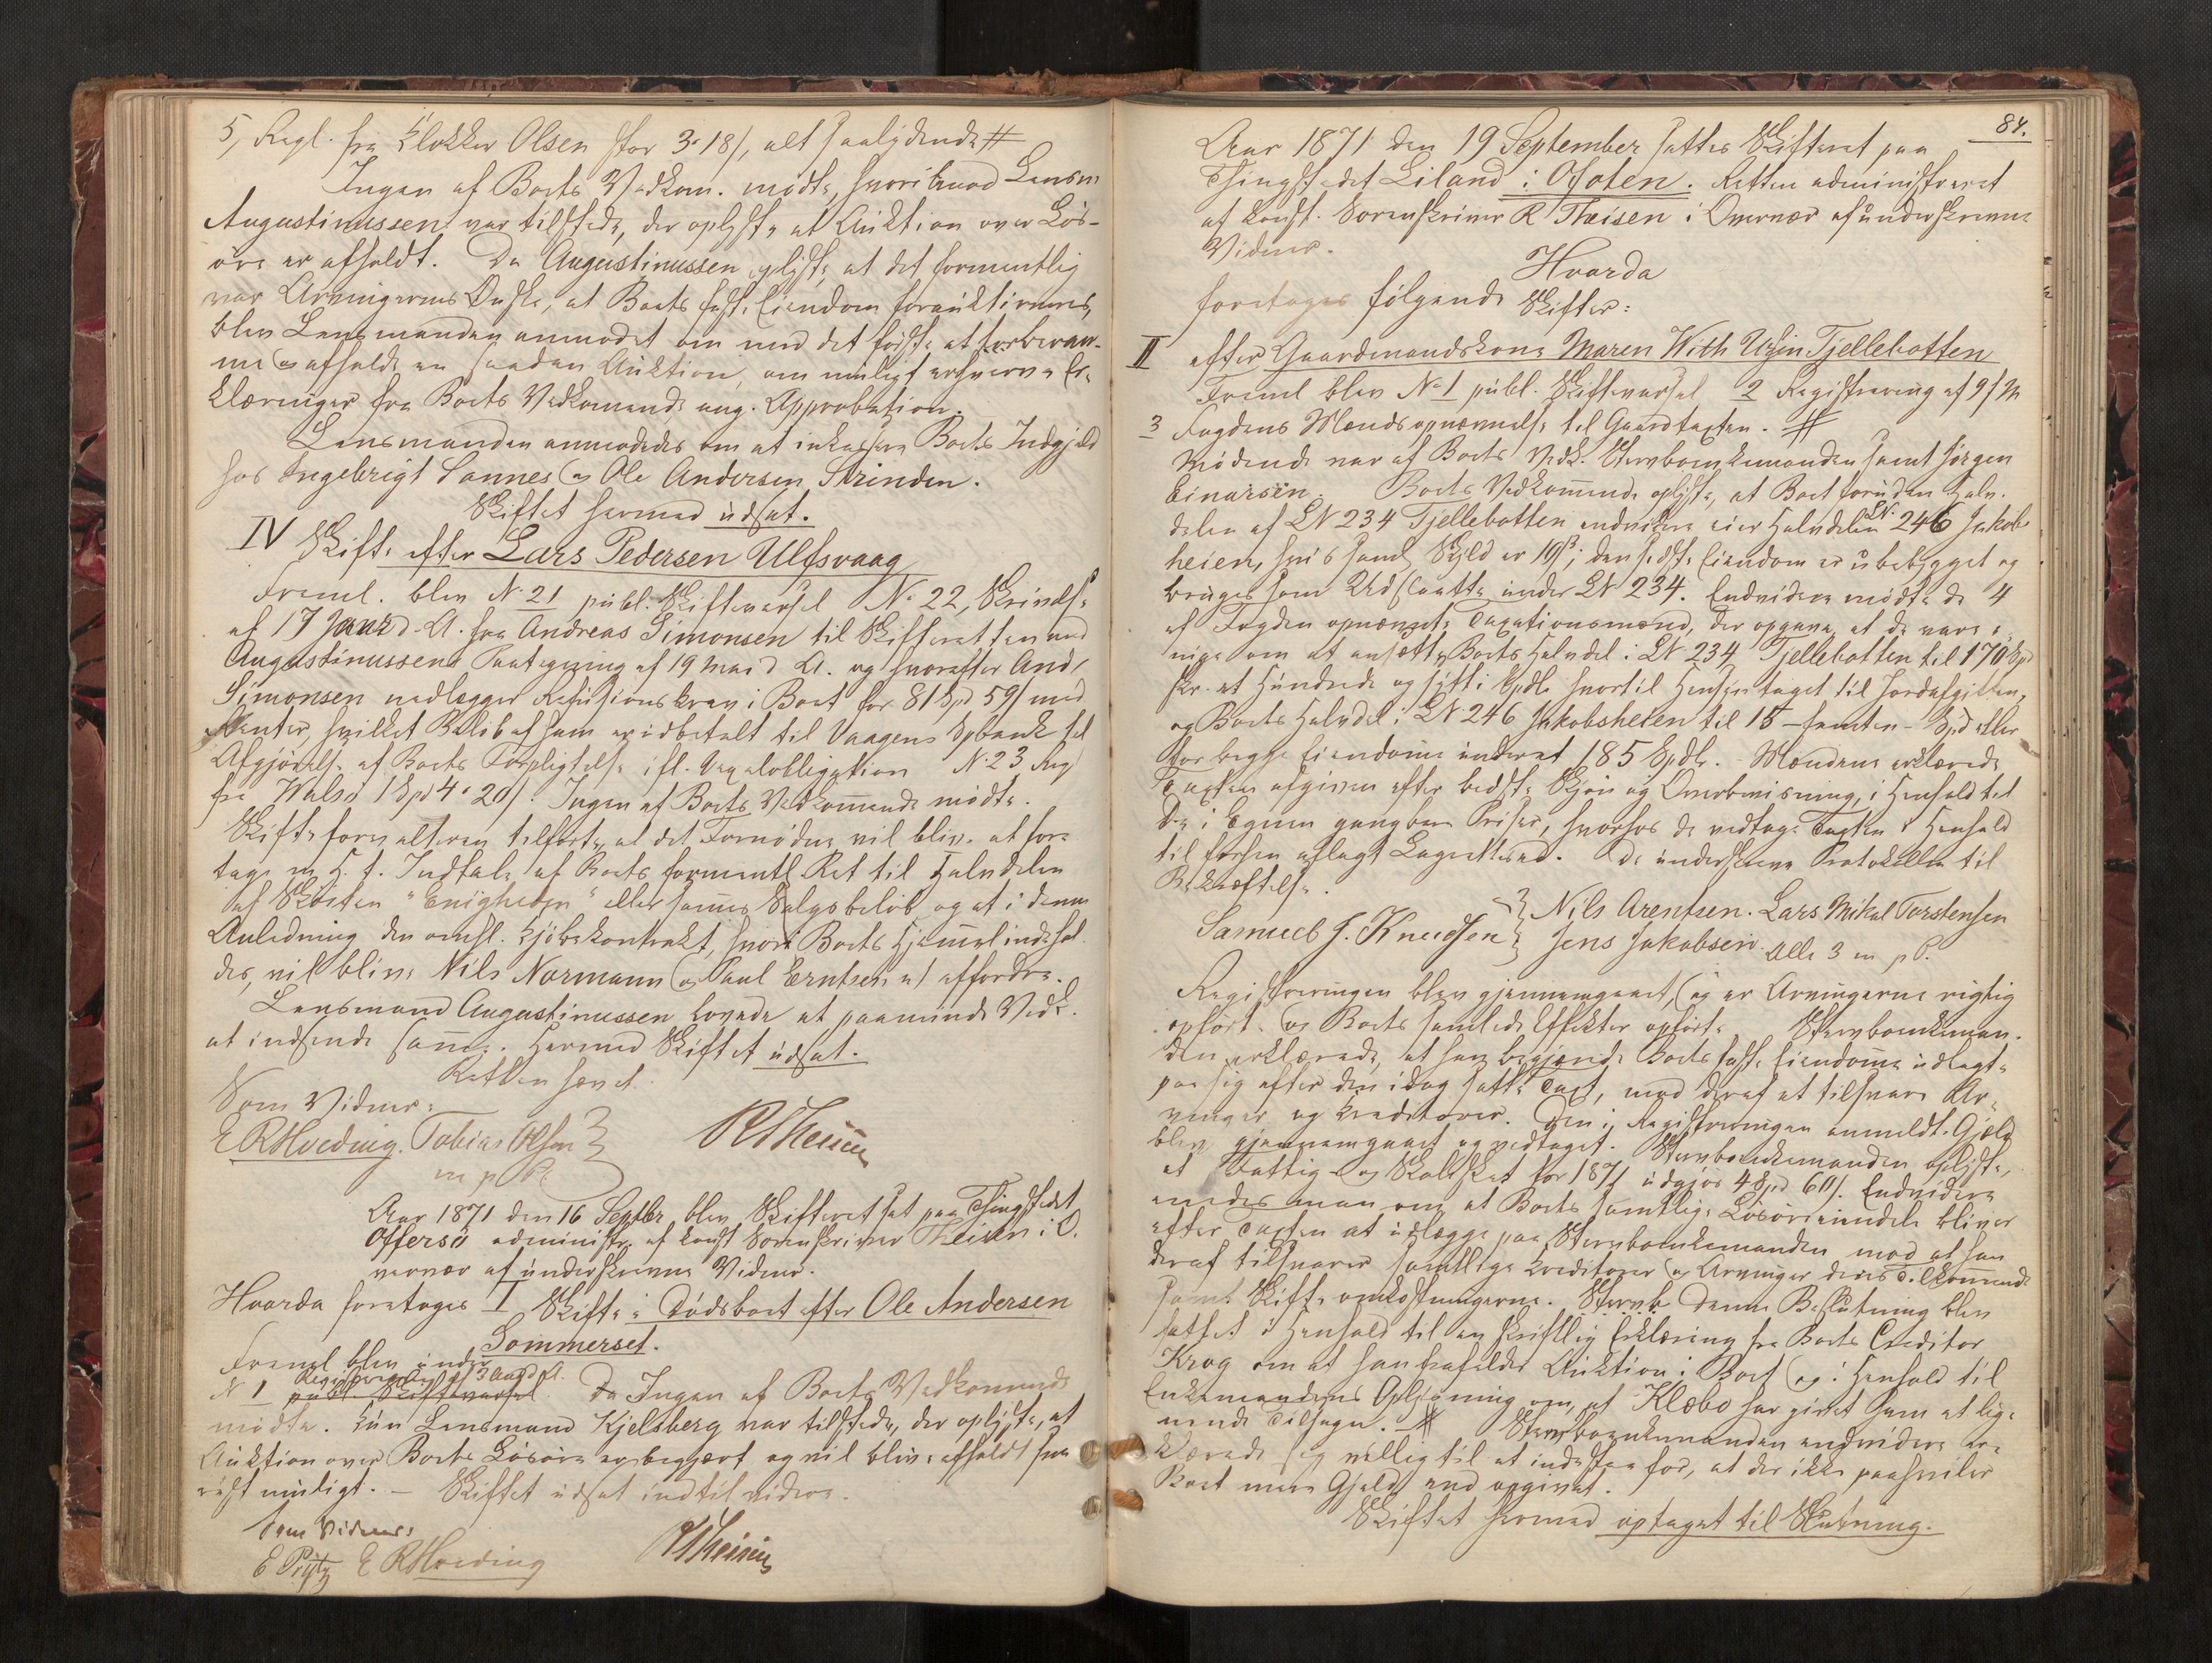 5, Regl. fra Klokker Olsen stor 3. 18/, alt saalydende #
Ingen af Boets Vedkom. mødte, hvorimod Lensm
Augustinussen var tilstede, der oplyste at Auktion over Løs-
øre er afholdt. Da Augustinussen oplyste at det formentlig
var Arvingernes Ønske, at Boets faste Eiendom forauktioneres,
blev Lensmanden anmodet om med det første at forberam-
me og afholde en saadan Auktion, om muligt erhverve Er-
klæringer fra Boets Vedkomende ang. Approbation.
Lensmanden anmodedes om at inkassere Boets Indgjeld
hos Ingebrigt Sannes og Ole Andersen Strinden.
Skiftet hermed udsat.
IV Skifte efter Lars Pedersen Ulfsvaag
Freml. blev No 21 publ. Skiftevarsel No 22, Skrivelse
af 17 Janr d. A. fra Andreas Simonsen til Skifteretten med
Augustinussens Paategning af 19 Mai d. A. og hvorefter And/
Simonsen nedlægger Refusionskrav i Boet for 81 Spd 59/ med
Renter, hvilket Beløb af ham er udbetalt til Vaagens Spbank til
Afgjørelse af Boets Forpligtelse ifl. Vexelobligation No 23 Reg
fra Walsø 1 Spd 4. 20/. Ingen af Boets Vedkommende mødte.
Skifteforvalteren tilførte, at det Fornødne vil blive at fore
tage m. H. t. Indtale af Boets formentl. Ret til Halvdelen
af Skøiten "Enigheden" eller sammes Salgsbeløb og at i denne
Anledning den omhl. Kjøbekontrakt, hvori Boets Hjemmel indehol-
des, vil blive Nils Normann og Paul Erntsen affordre.
Lensmand Augustinussen lovede at paaminde Vedk.
at indsende samme. Hermed Skiftet udsat.
Retten hævet.
Som Vidner:
E R Hveding. Tobias Olsen
m p P.
R Theisen
Aar 1871 den 16 Septbr blev Skifteret sat paa Thingstedet
Offersø administr. af konst Sorenskriver Theisen i O-
vervær af underskrevne Vidner.
Hvorda foretoges I Skifte i Dødsboet efter Ole Andersen
Sommerset.
Freml blev under
Registrering af 3 Aug d. A.
N 1 publ. Skiftevarsel. Da Ingen af Boets Vedkomende
mødte. Kun Lensmand Kjelsberg var tilstede, der oplyste, at
Auktion over Boets Løsøre er begjært og vil blive afholdt sna
rest muligt. — Skiftet udsat indtil videre.
Som Vidner:
E Prytz E R Hveding
R Theisen
84.
Aar 1871 den 19 September sattes Skifteret paa
Thingstedet Liland i Ofoten. Retten administreret
af konst. Sorenskriver R Theisen i Overvær af underskrevne
Vidner.
Hvorda
foretoges følgende Skifter:
II efter Gaardmandskone Maren With Utzin Tjellebotten
Freml blev No 1 publ. Skiftevarsel 2 Registrering af 9/ M
3 Fogdens Mændsopnævnelse til Gaardtaxten. #
Mødende var af Boets Vedk. Stervboenkemanden samt Jørgen
Einarsen. Boets Vedkommende oplyste, at Boet foruden Halv-
delen af LN 234 Tjellebotten endvidere eier Halvdelen LN. 246 Jakobs
heien, hvis saml. Skyld er 19ß; den sidste Eiendom er ubebygget og
bruges som Udslaatte under LN 234. Endvidere mødte de 4
af Fogden opnævnte Taxationsmænd, der opgave at de vare e-
nige om at ansætte Boets Halvdel i LN 234 Tjellebotten til 170 Spd
skr. et Hundrede og sytti Spdlr hvortil Hensyn taget til Jordafgiften,
og Boets Halvdel i LN 246 Jakobsheien til 15 — femten — Spd eller
for begge Eiendomme underet 185 Spdlr. Mændene erklærede
Taxten afgiven efter bedste Skjøn og Overbevisning, i Henhold til
de i Egnen gangbare Priser, hvorhos de vedtoge Taxten i Henhold
til forhen aflagt Lagrettesed. De underskreve Protokollen til
Bekræftelse.
Samuel J. Knudsen Nils Arentsen. Lars Mikal Torstensen
Jens Jakobsen. Alle 3 m p P.
Registreringen blev gjennemgaaet, og er Arvingerne rigtig
opførte og Boets samlede Effekter opførte. Stervboenkeman-
den erklærede, at han begjærede Boets faste Eiendomme udlagte
paa sig efter den idag satte Taxt, mod deraf at tilsvare Ar-
vinger og Kreditorer. Den i Registreringen anmeldte Gjæld
blev gjennemgaaet og vedtaget. Stervboenkemanden oplyste,
at Fattig- og Skoleskat for 1871 udgjør 4 Spd 60/. Endvidere
enedes man om at Boets samtlige Løsøreeiendele bliver
efter Taxten at udlægge paa Stervboenkemanden mod at han
deraf tilsvarer samtlige Kreditorer og Arvinger deres Tilkommende
samt Skifteomkostningerne. Stervb Denne Beslutning blev
fattet i Henhold til en skriftlig Erklæring fra Boets Creditor
Krog om at han frafalder Auktion i Boet og i Henhold til
Enkemandens Oplysning om, at Klæbo har givet ham et lig-
nende Tilsagn. # Stervboenkemanden endvidere er-
klærede sig villig til at indestaa for, at der ikke paahviler
Boet mere Gjeld end opgivet.
Skiftet hermed optaget til Slutning.